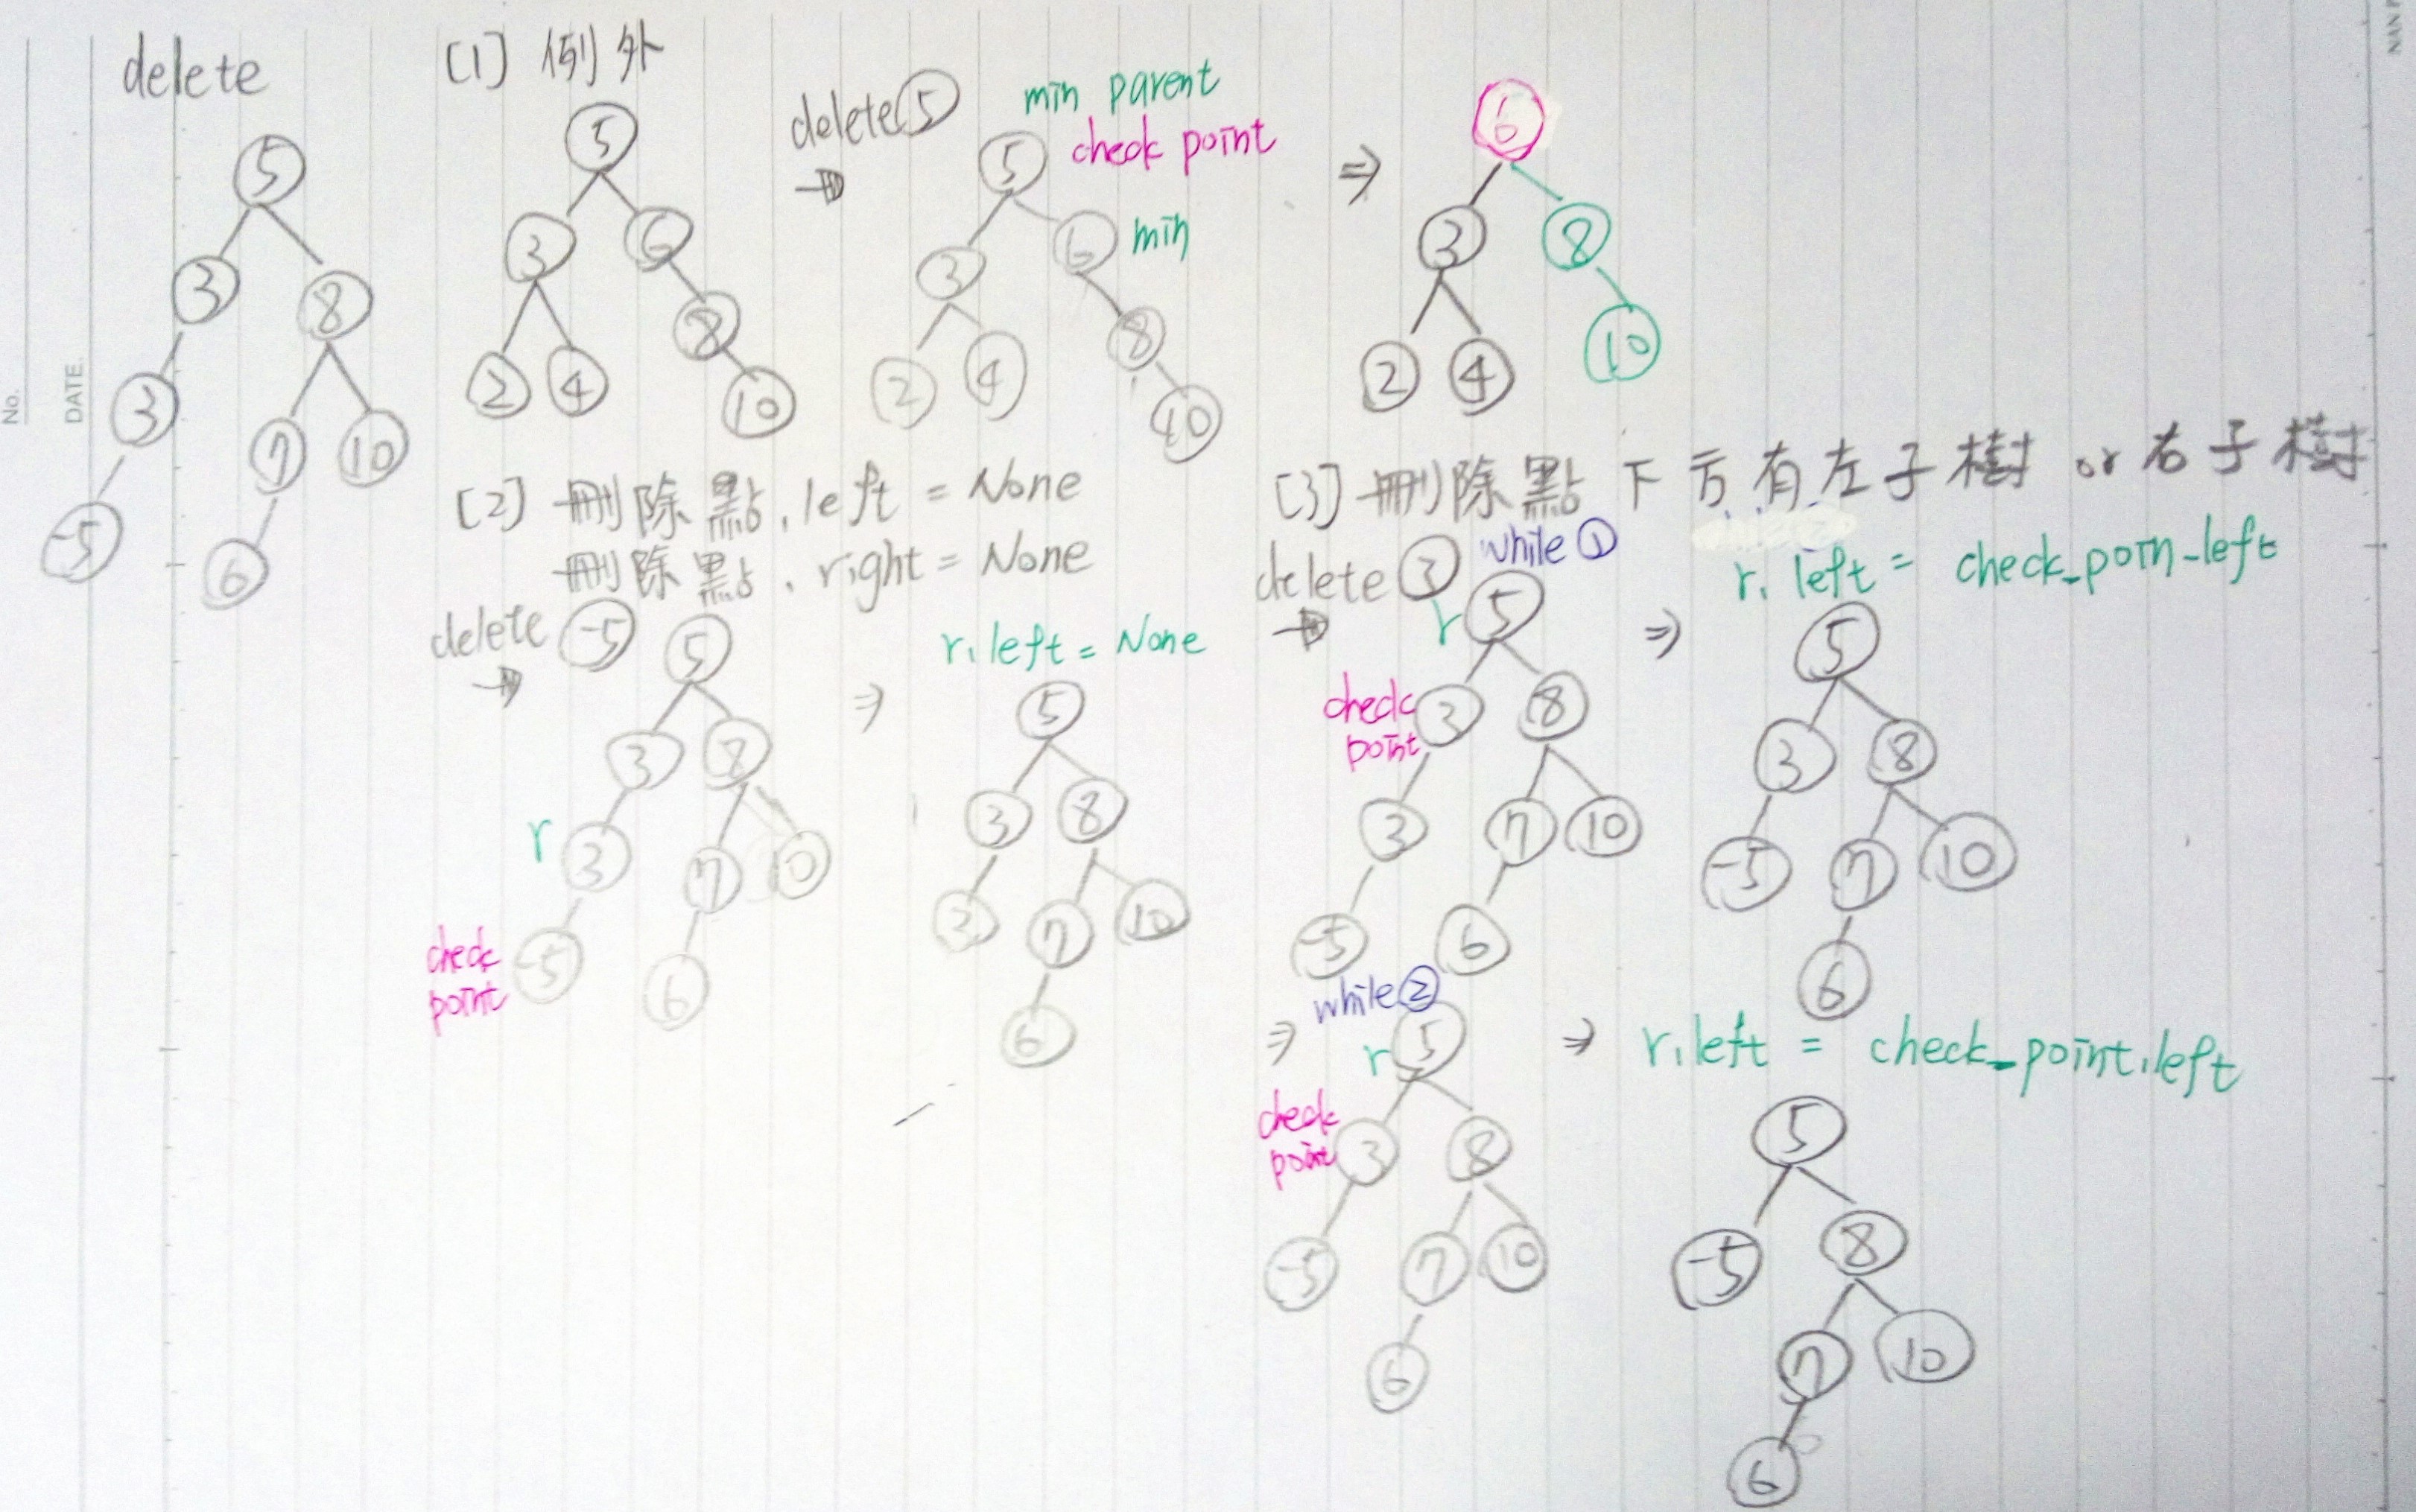 No.
DATE.
NAN P
delete
5
3 8
3 7 10
-5 6
[1] 例外
5
3 6
2 4 8
10
delete 5
min parent
check point
5
3 6 min
2 4 8
10
6
3 8
2 4 10
[2] 刪除點.left = None
刪除點.right = None
delete -5
5
3 8
r 3 7 10
check point -5 6
r.left = None
5
3 8
3 7 10
6
[3] 刪除點下方有左子樹 or 右子樹
delete 3 while ①
r 5
check point 3 8
3 7 10
-5 6
r.left = check_poin-left
5
3 8
-5 7 10
6
while ②
r 5
check point 3 8
-5 7 10
6
r.left = check_point.left
5
-5 8
7 10
6